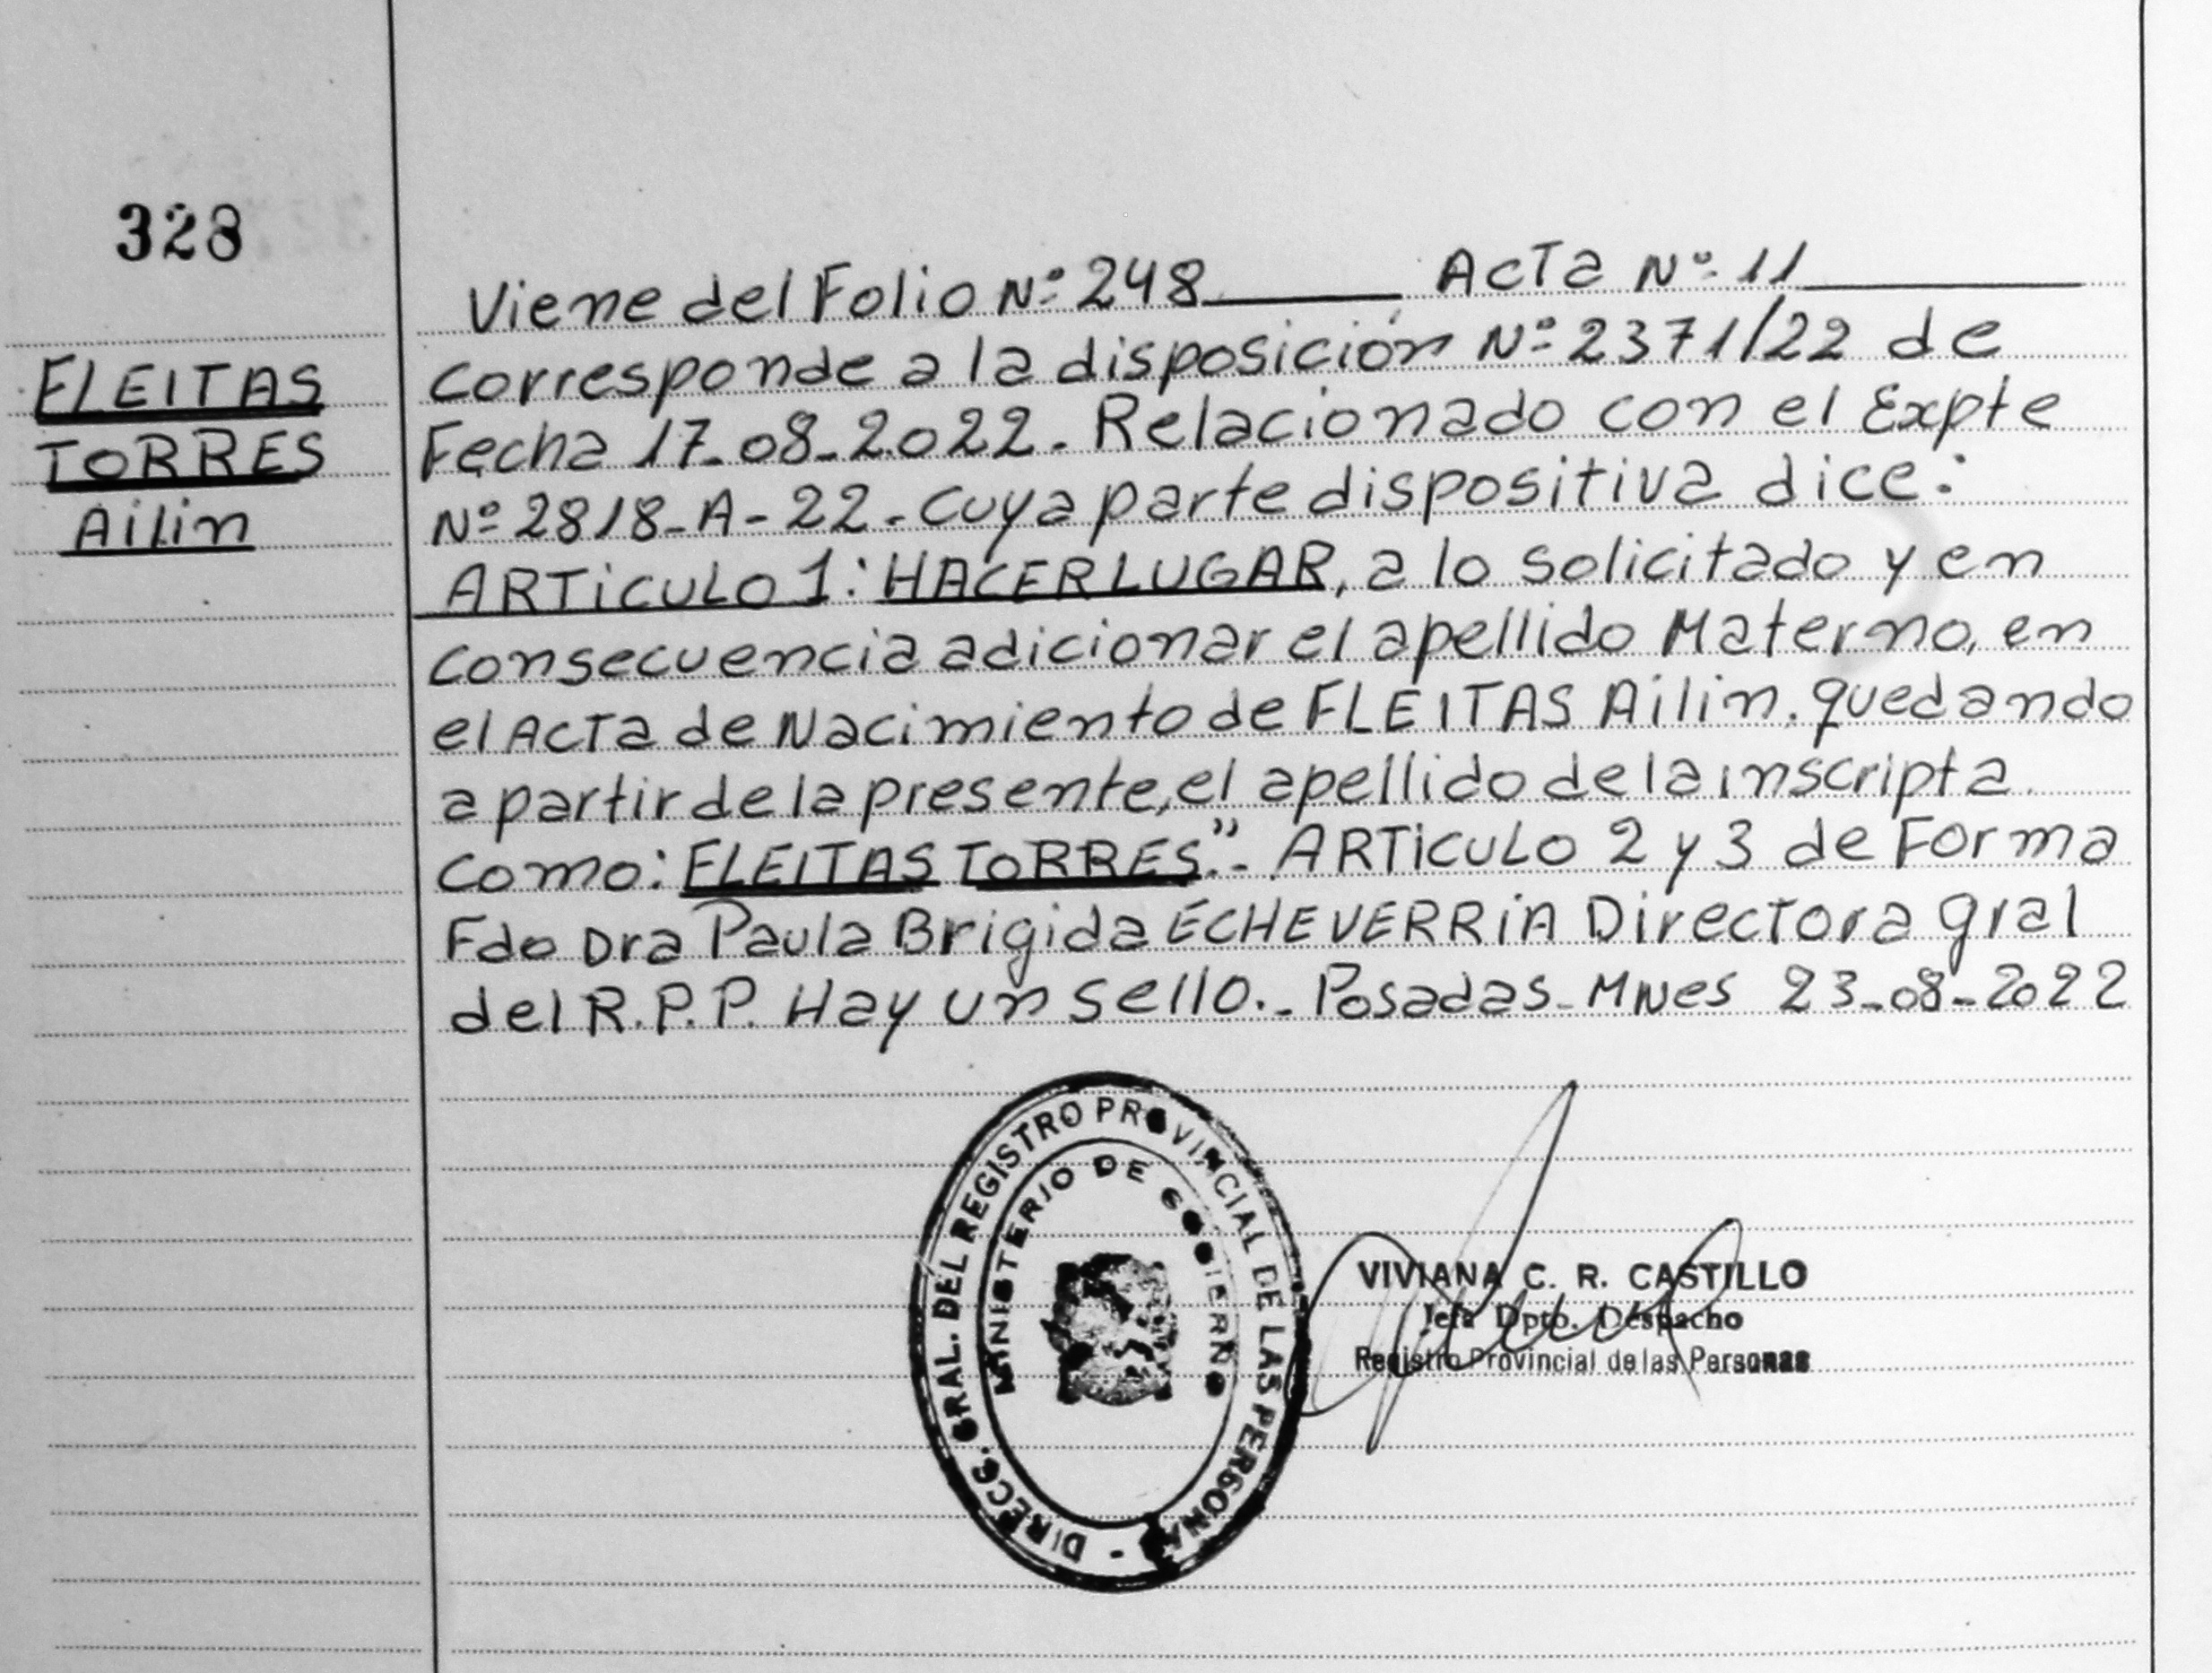 328
FLEITAS
TORRES
Ailin
Viene del Folio Nº 248 Acta Nº 11
corresponde a la disposición Nº 2371/22 de
Fecha 17-08-2022. Relacionado con el Expte
Nº 2818-A-22. Cuya parte dispositiva dice:
ARTiCULO 1: HACER LUGAR, a lo solicitado y en
consecuencia adicionar el apellido Materno, en
el Acta de Nacimiento de FLEITAS Ailin. quedando
a partir de la presente, el apellido de la inscripta
como: FLEITAS TORRES".- ARTiCULO 2 y 3 de Forma
Fdo Dra Paula Brigida ECHEVERRiA Directora gral
del R.P.P. Hay un sello.- Posadas-Mnes 23-08-2022
DIRECC. GRAL. DEL REGISTRO PROVINCIAL DE LAS PERSONAS -
MINISTERIO DE GOBIERNO
VIVIANA C. R. CASTILLO
Jefa Dpto. Despacho
Registro Provincial de las Personas